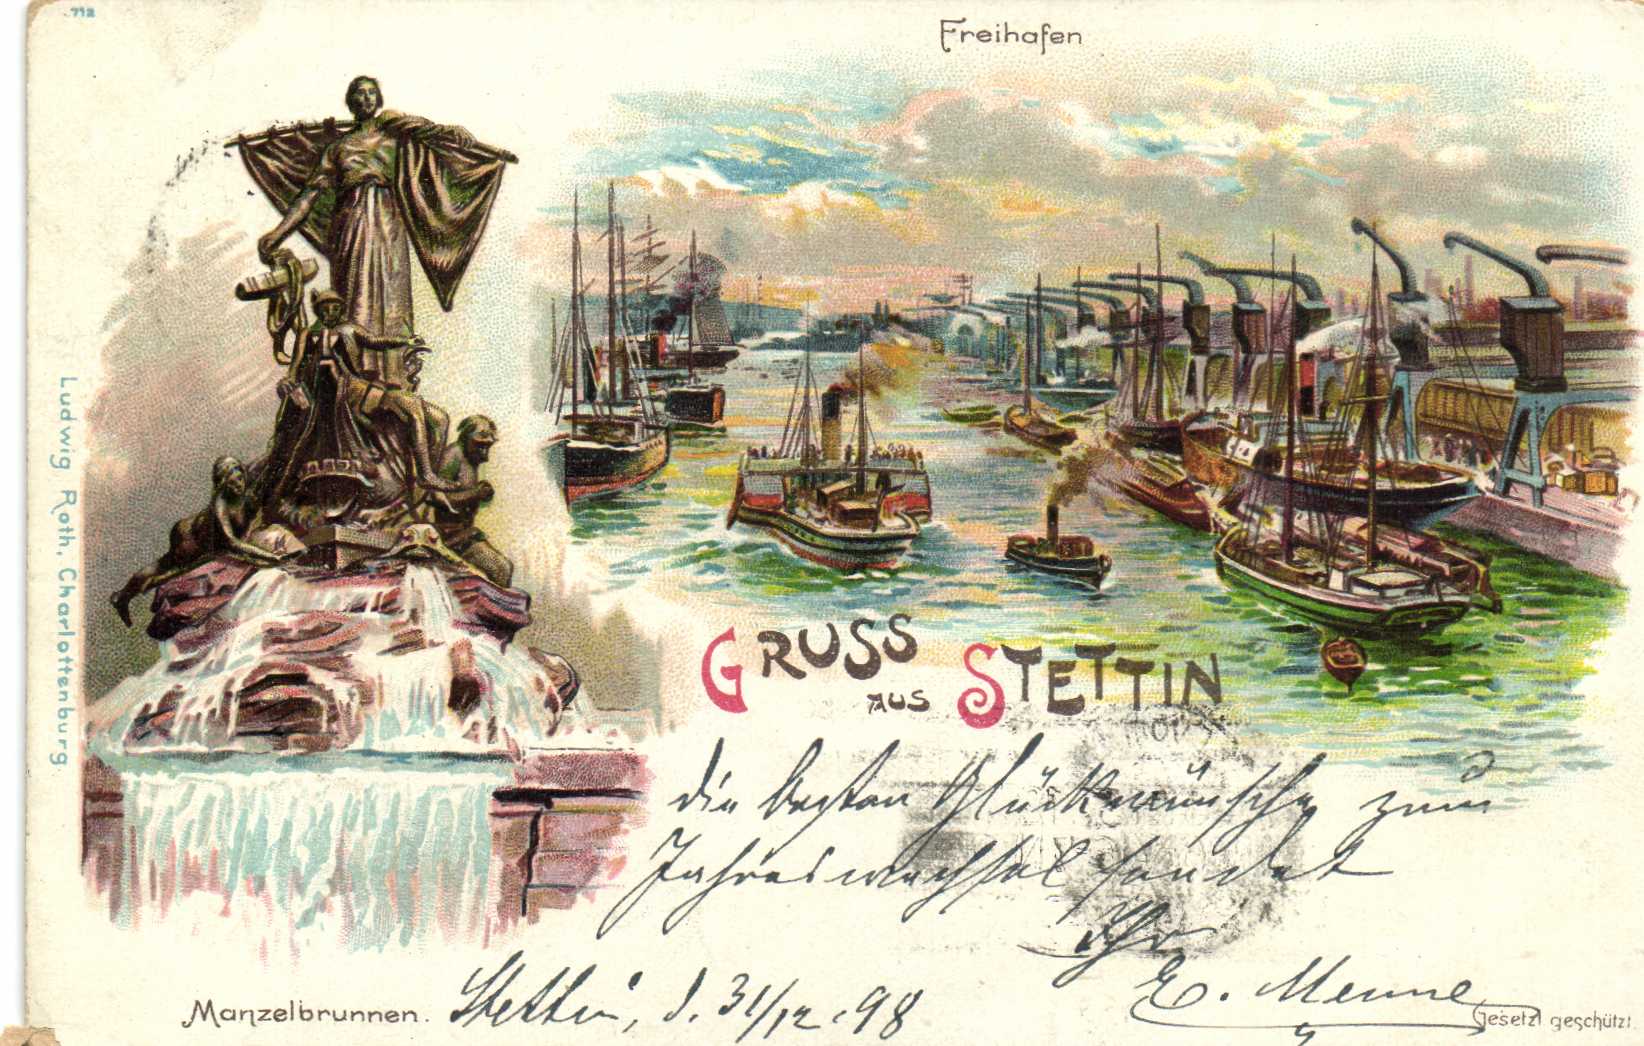 712
Freihafen
Ludwig Roth, Charlottenburg.
GRUSS
AUS STETTIN
die besten Glückwünsche zum
Jahreswechsel sendet
Ihr
E. Menne
Stettin, d. 31/12.98
Manzelbrunnen.
Gesetzl geschützt.